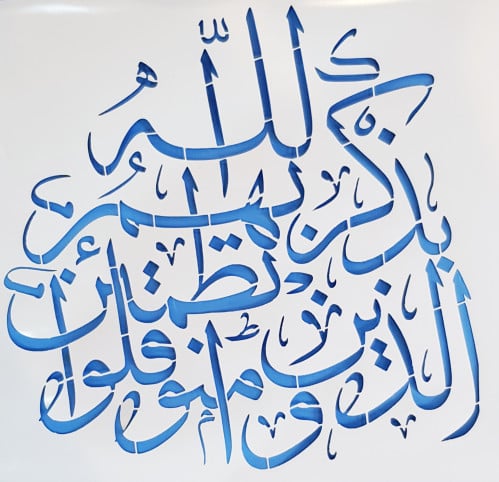 الذين آمنوا وتطمئن
قلوبهم
بذكر الله